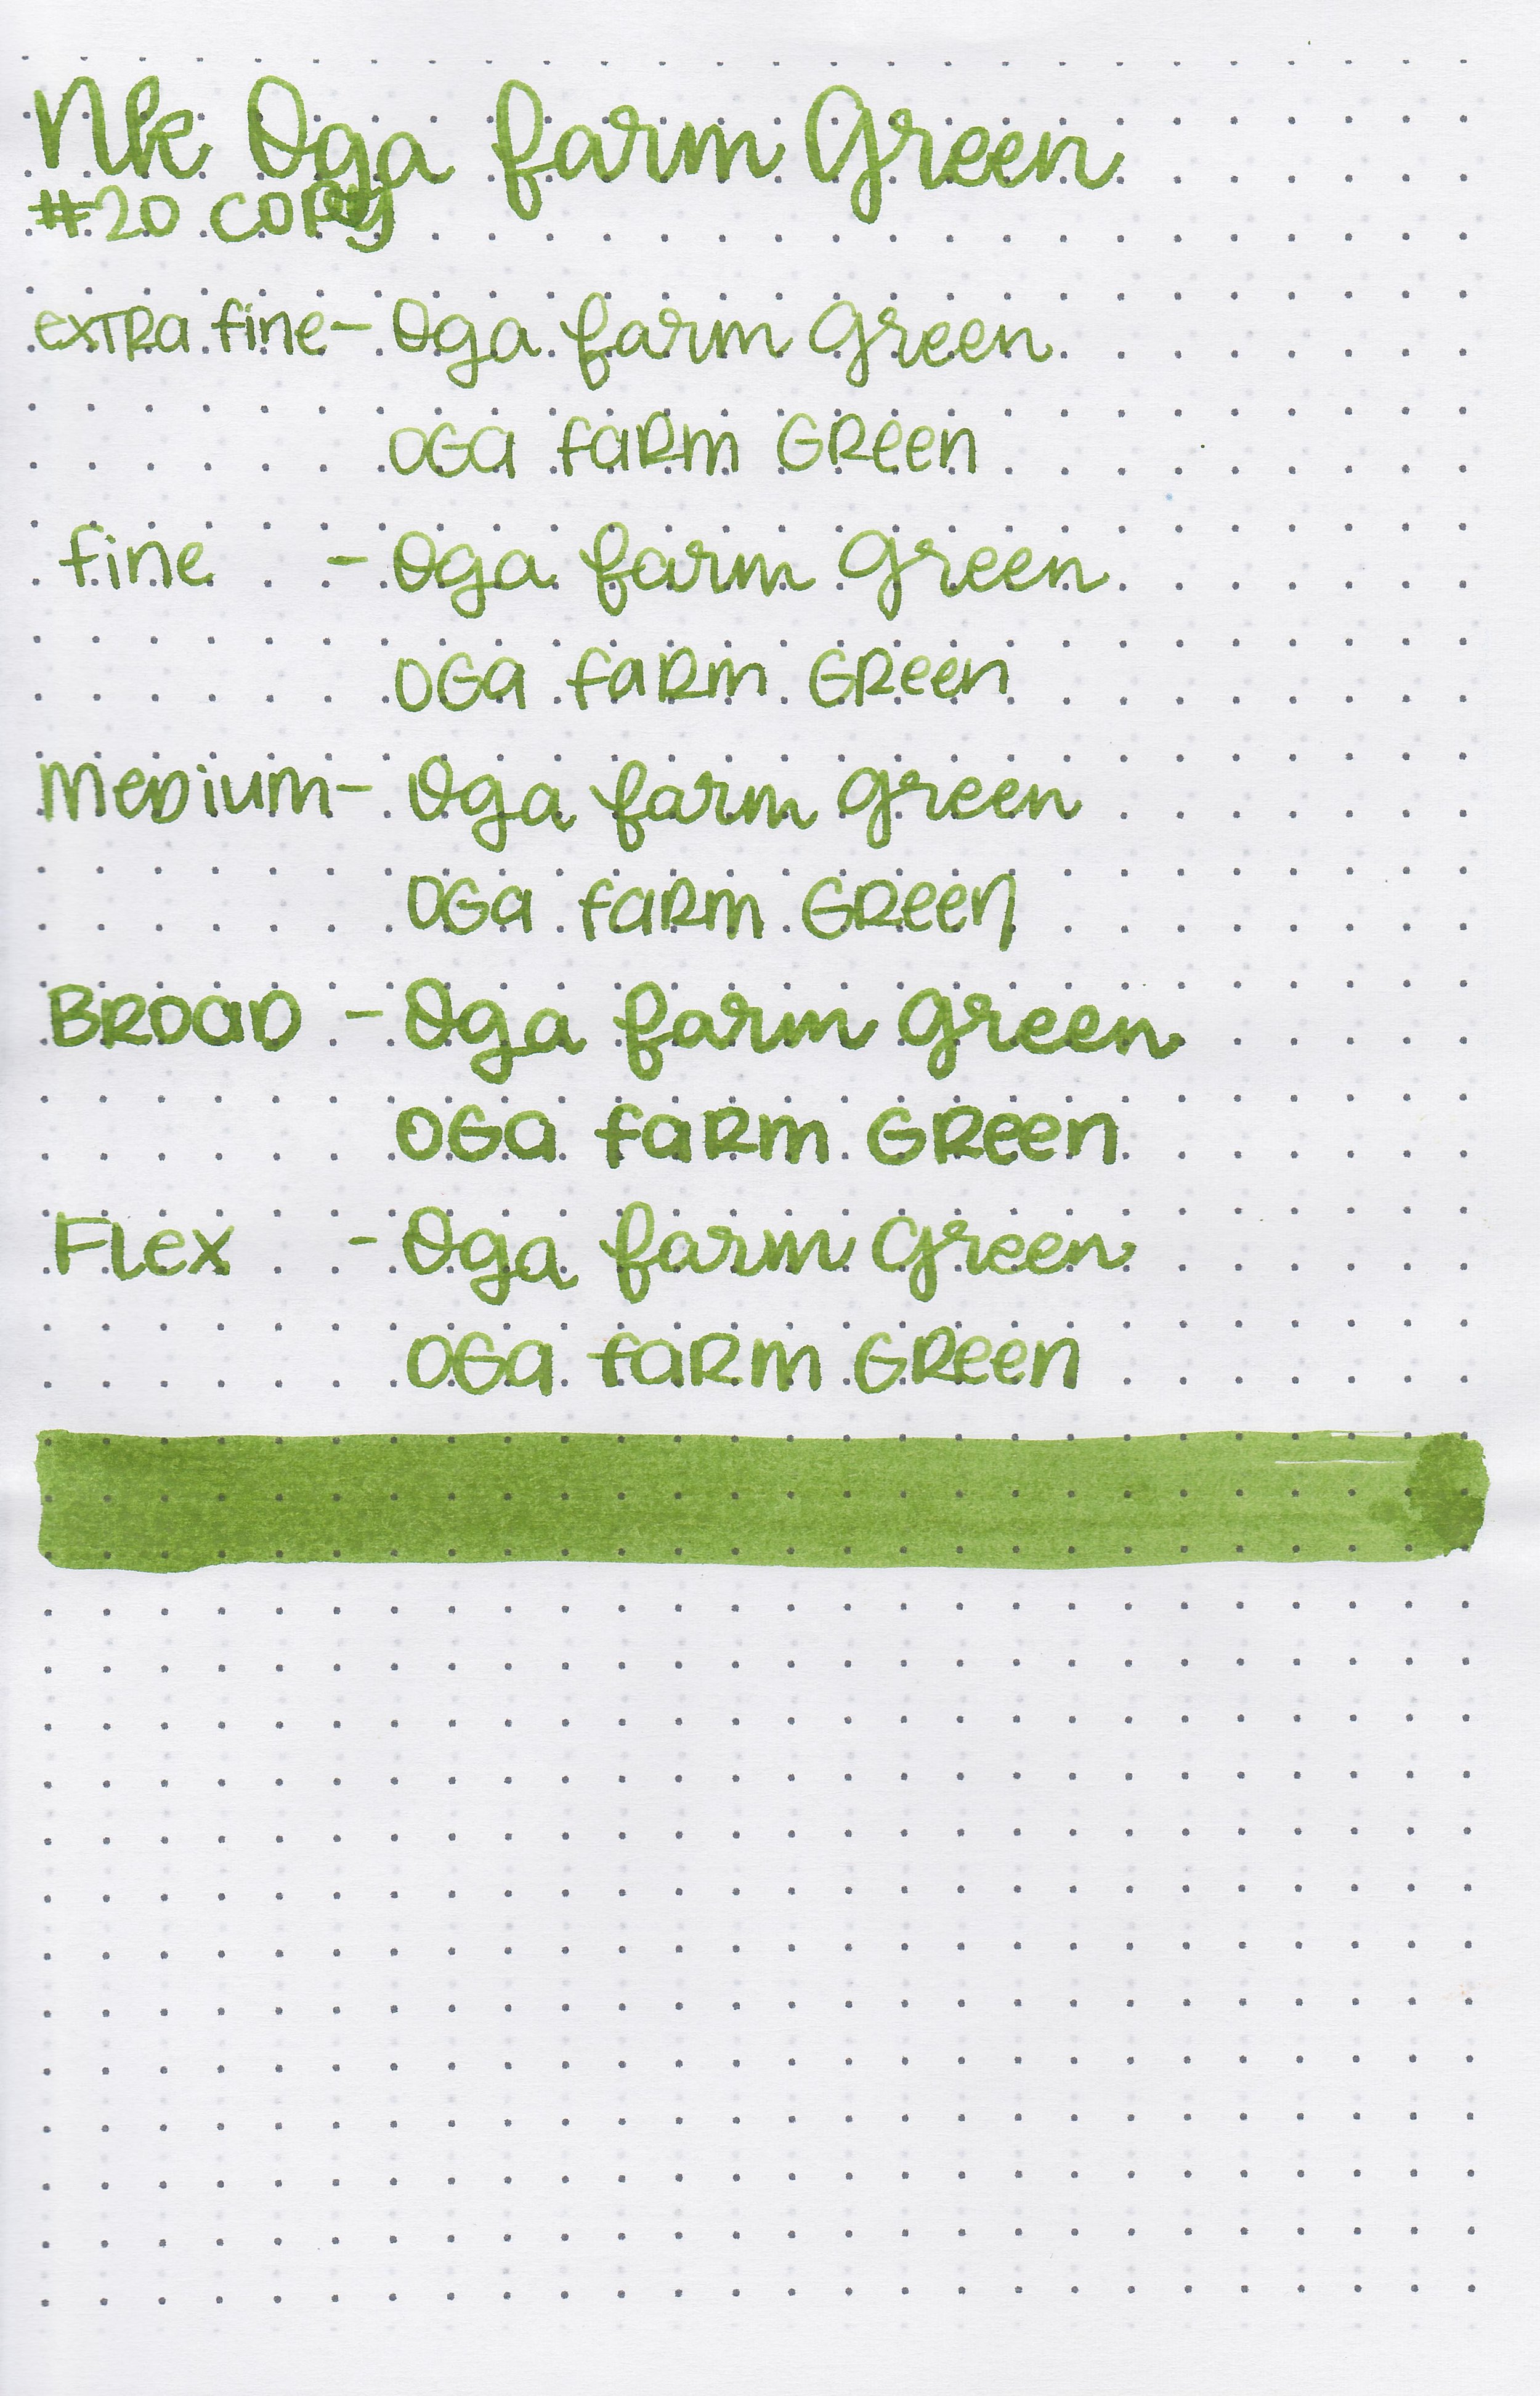 Nk Oga farm Green
#20 COPY
extra fine - Oga farm Green
OGa farm Green
fine - Oga farm Green
OGa farm Green
Medium - Oga farm green
OGa farm Green
Broad - Oga farm green
OGa farm Green
Flex - Oga farm Green
OGa farm Green